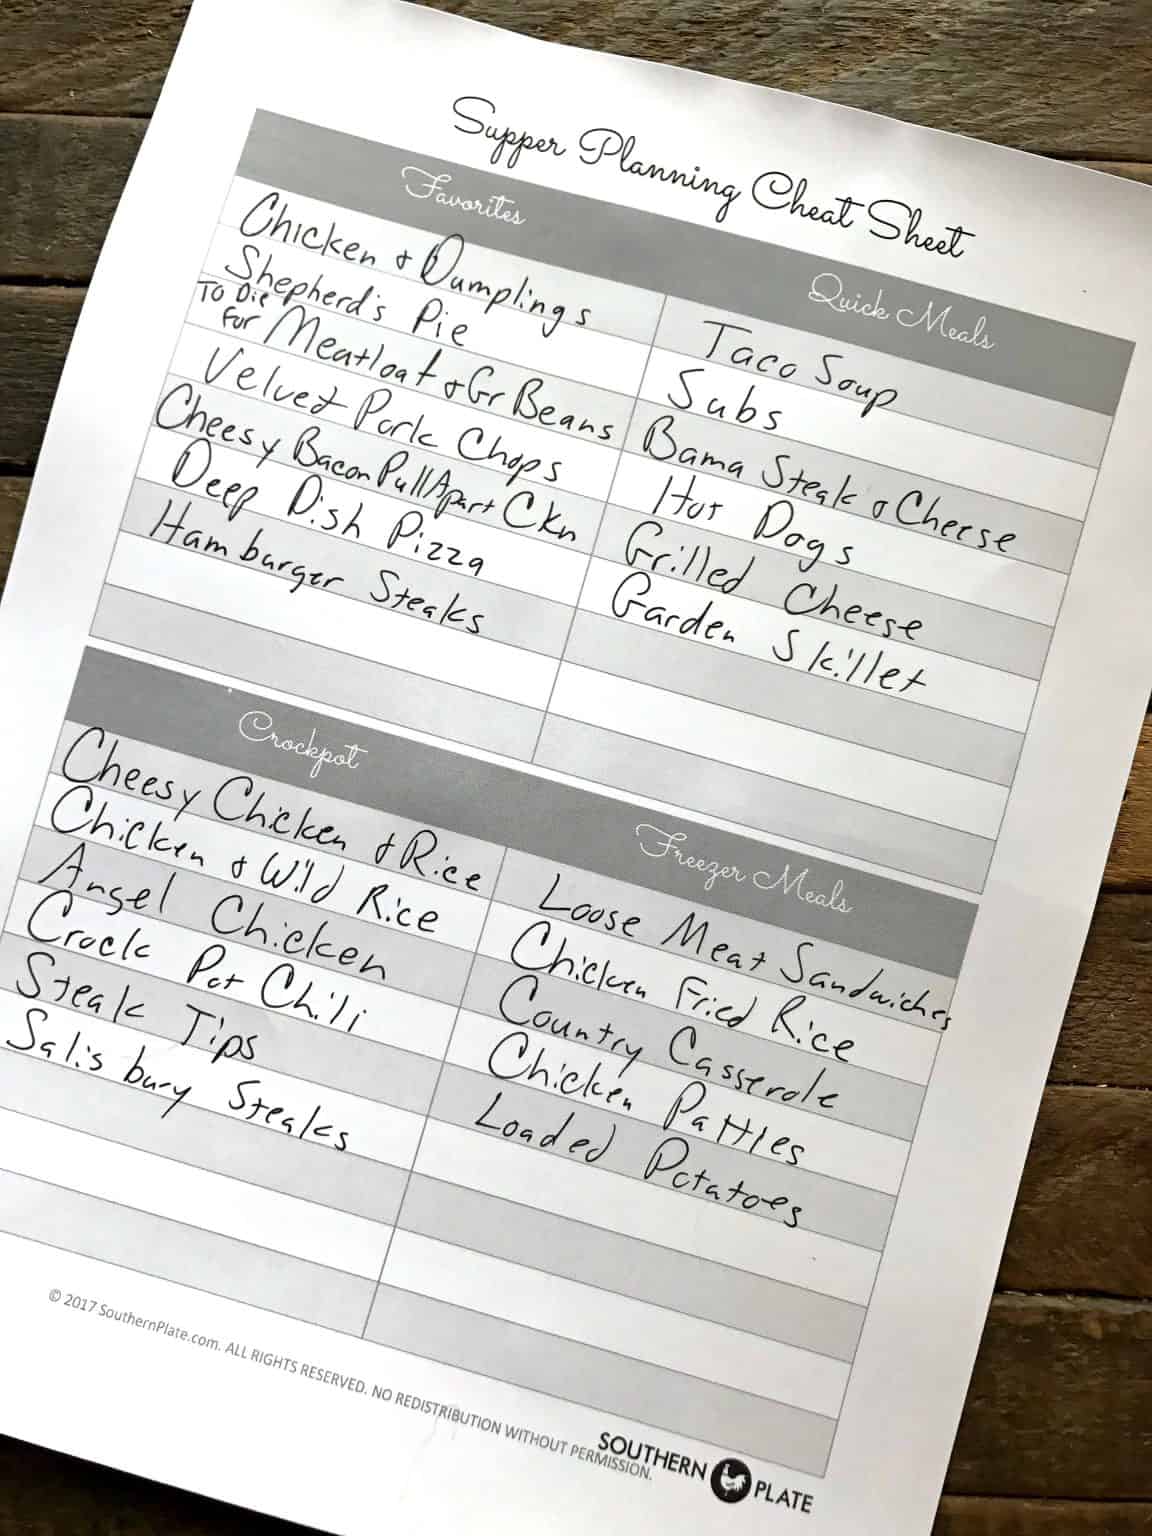 Supper Planning Cheat Sheet
Favorites
Chicken & Dumplings
Shepherd's Pie
To Die
For Meatloaf & Gr Beans
Velvet Pork Chops
Cheesy Bacon Pull Apart Ckn
Deep Dish Pizza
Hamburger Steaks
Quick Meals
Taco Soup
Subs
Bama Steak & Cheese
Hot Dogs
Grilled Cheese
Garden Skillet
Crockpot
Cheesy Chicken & Rice
Chicken & Wild Rice
Angel Chicken
Crock Pot Chili
Steak Tips
Salisbury Steaks
Freezer Meals
Loose Meat Sandwiches
Chicken Fried Rice
Country Casserole
Chicken Patties
Loaded Potatoes
© 2017 SouthernPlate.com. ALL RIGHTS RESERVED. NO REDISTRIBUTION WITHOUT PERMISSION.
SOUTHERN PLATE